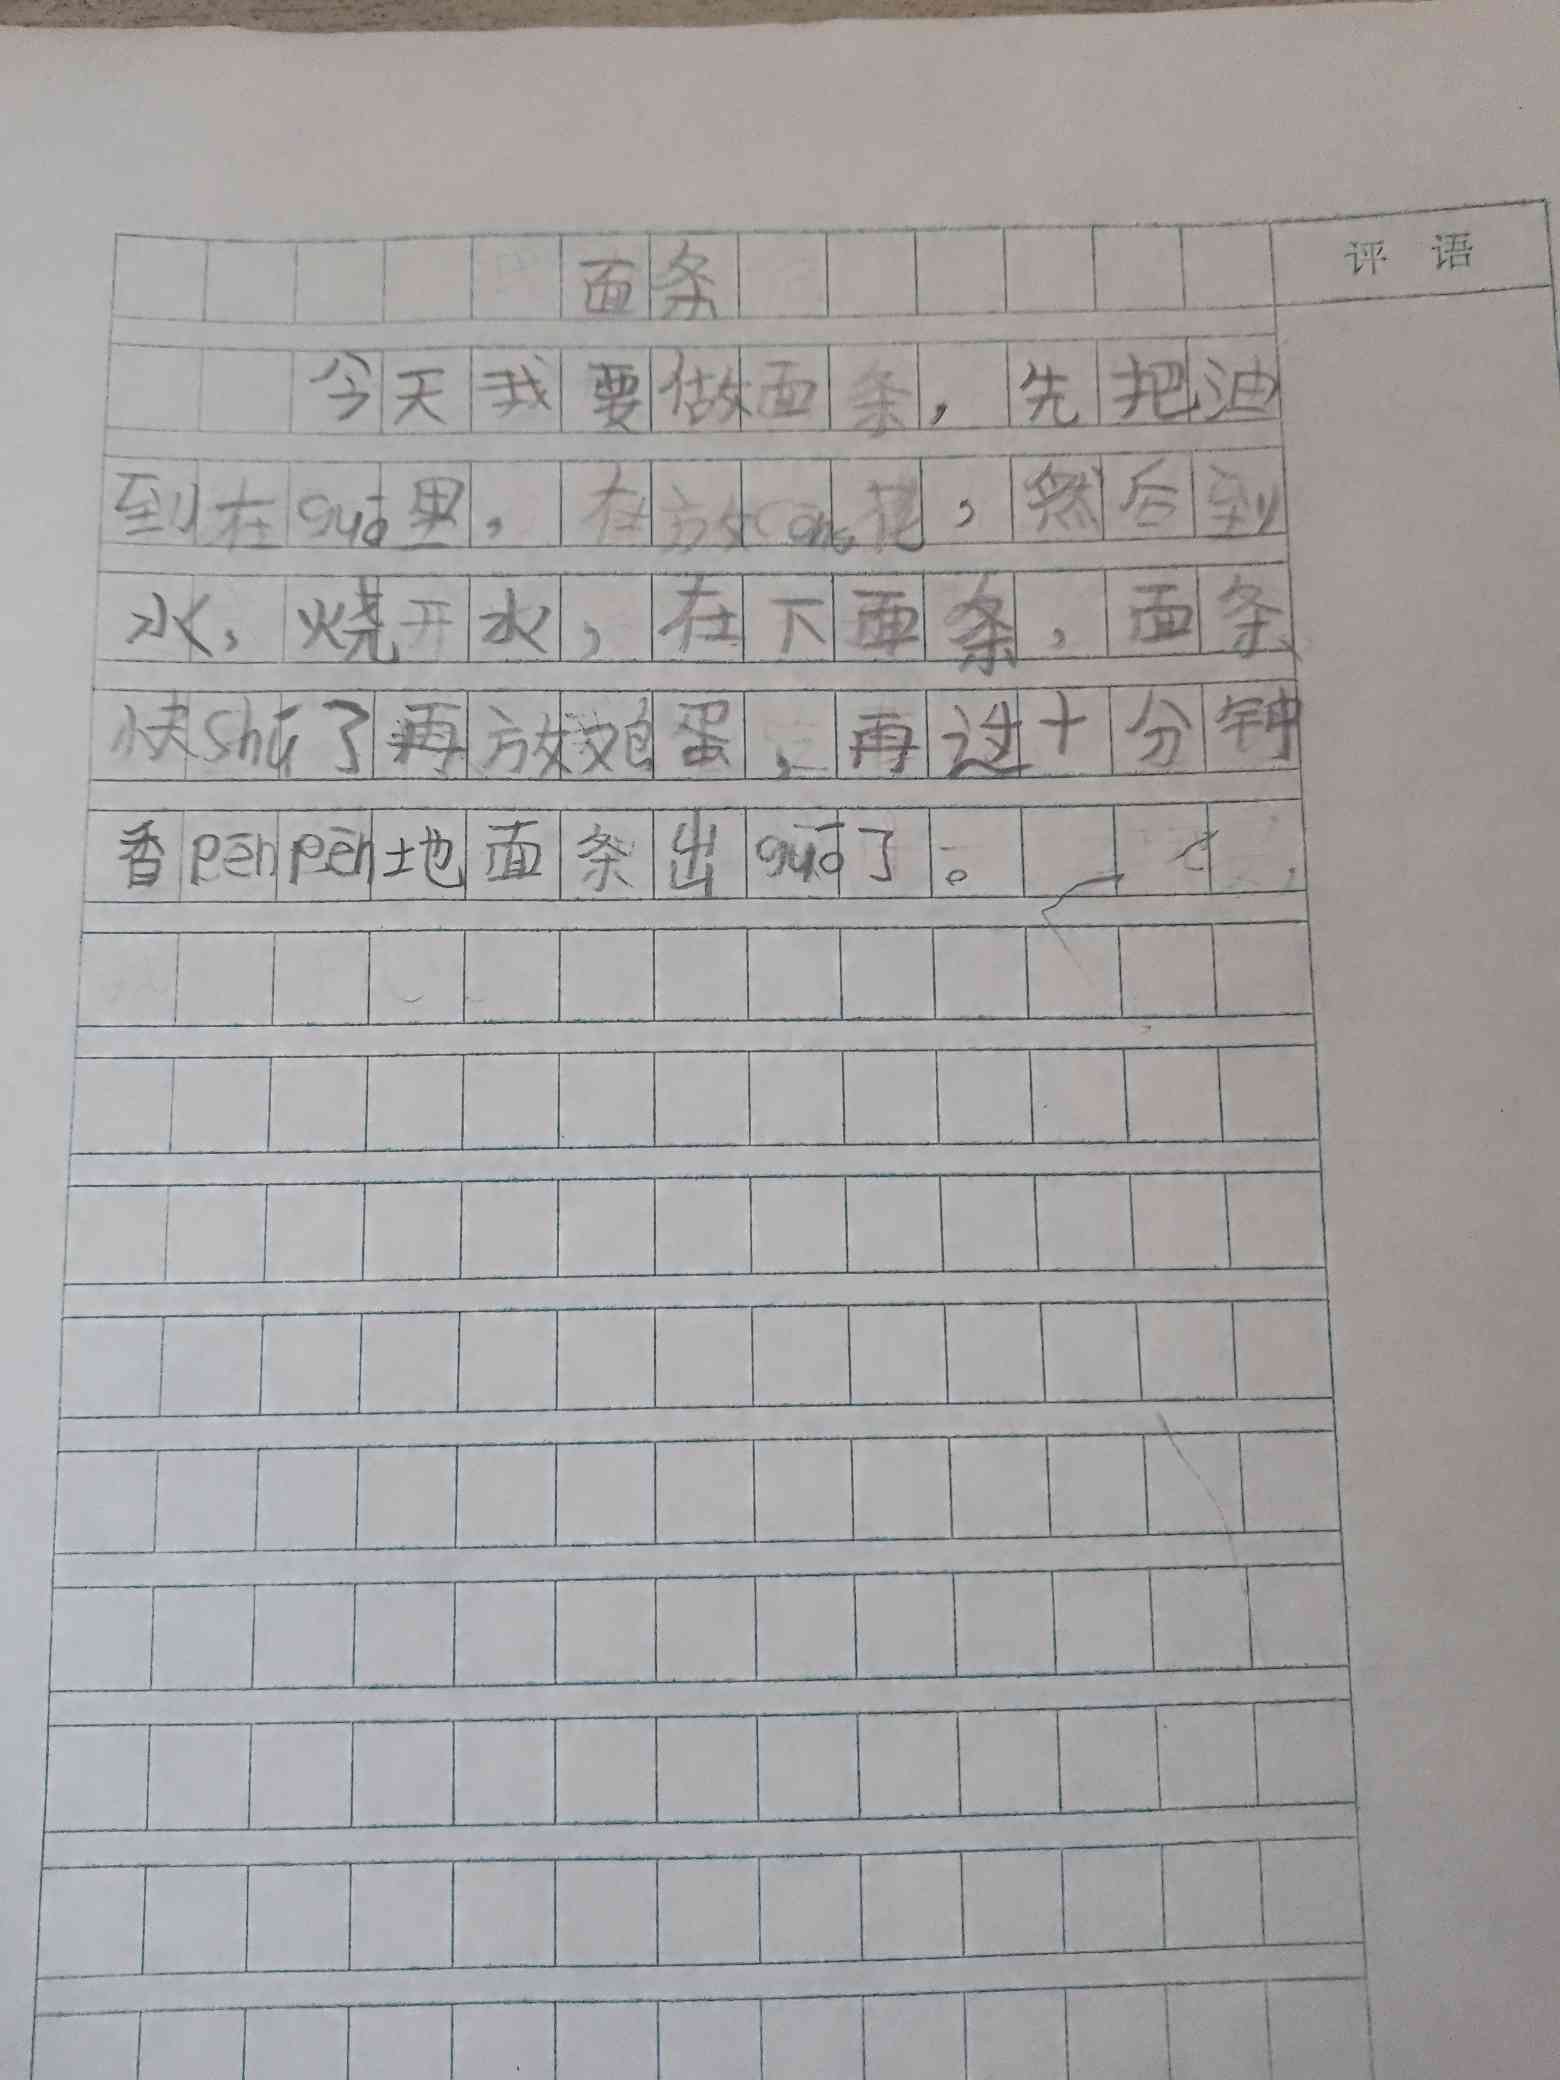 面条
评 语
今天我要做面条，先把油
到在guō里，在放cōng花，然后到
水，烧开水，在下面条，面条
快shú了再放鸡蛋，再过十分钟
香pēnpēn地面条出guō了。